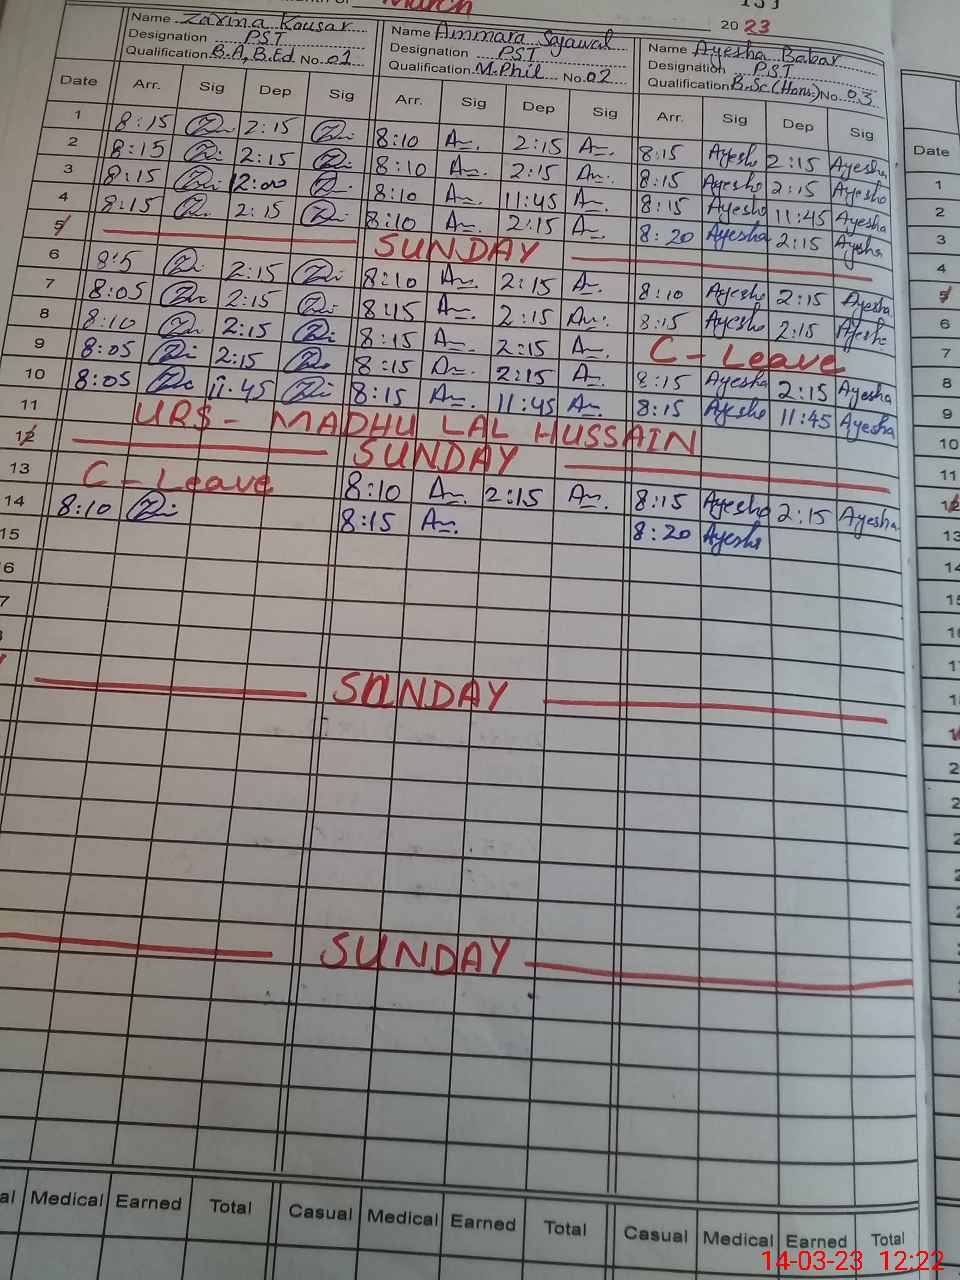 March
20 23
Name Zarina Kousar
Designation PST
Qualification B.A, B.Ed. No. 01
Name Ammara Sajawal
Designation PST
Qualification M.Phil No. 02
Name Ayesha Babar
Designation PST
Qualification B.Sc (Hons.) No. 03
Date Arr. Sig Dep Sig Arr. Sig Dep Sig Arr. Sig Dep Sig Date
1 8:15 2:15 8:10 2:15 8:15 Ayesha 2:15 Ayesha
2 8:15 2:15 8:10 2:15 8:15 Ayesha 2:15 Ayesha
3 8:15 12:00 8:10 11:45 8:15 Ayesha 11:45 Ayesha
4 8:15 2:15 8:10 2:15 8:20 Ayesha 2:15 Ayesha
5 SUNDAY
6 8:5 2:15 8:10 2:15 8:10 Ayesha 2:15 Ayesha
7 8:05 2:15 8:15 2:15 8:15 Ayesha 2:15 Ayesha
8 8:10 2:15 8:15 2:15 C-Leave
9 8:05 2:15 8:15 2:15 8:15 Ayesha 2:15 Ayesha
10 8:05 11:45 8:15 11:45 8:15 Ayesha 11:45 Ayesha
11 URS - MADHU LAL HUSSAIN
12 SUNDAY
13 C-Leave 8:10 2:15 8:15 Ayesha 2:15 Ayesha
14 8:10 8:15 8:20 Ayesha
15
SUNDAY
SUNDAY
Medical Earned Total Casual Medical Earned Total Casual Medical Earned Total
14-03-23 12:22